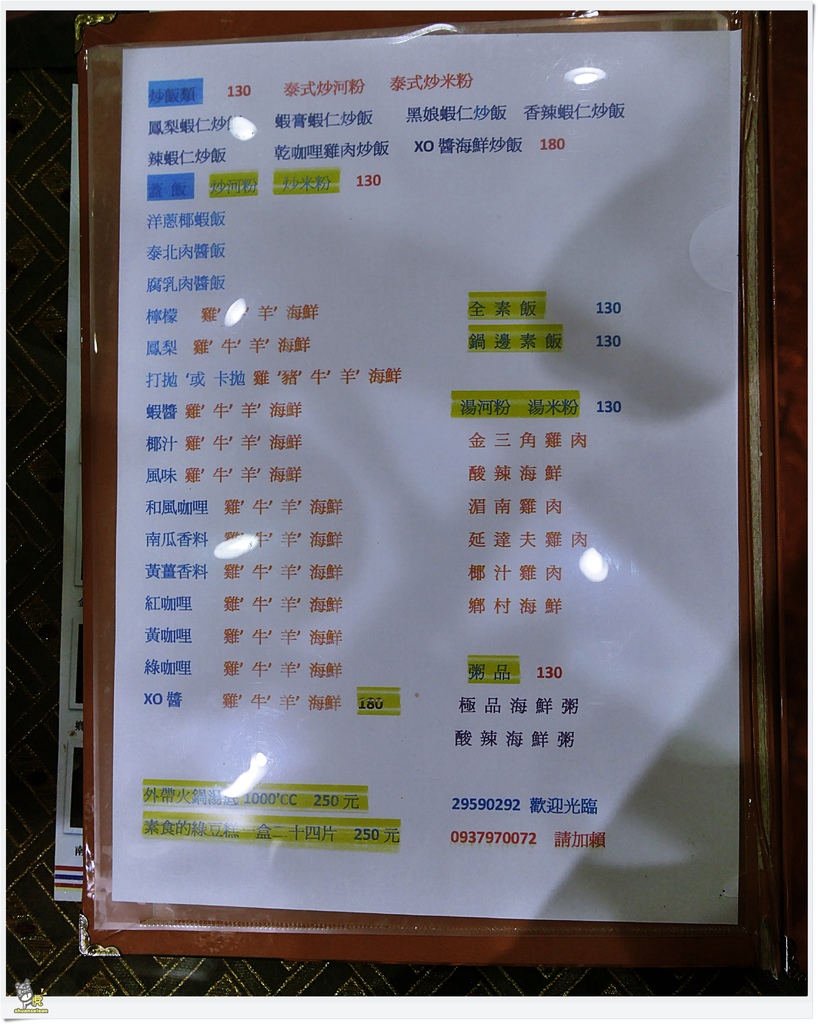 炒飯類 130 泰式炒河粉 泰式炒米粉
鳳梨蝦仁炒 蝦膏蝦仁炒飯 黑娘蝦仁炒飯 香辣蝦仁炒飯
辣蝦仁炒飯 乾咖哩雞肉炒飯 XO 醬海鮮炒飯 180
蓋 飯 炒河粉 炒米粉 130
洋蔥椰蝦飯
泰北肉醬飯
腐乳肉醬飯
檸檬 雞’ 羊’ 海鮮
鳳梨 雞’ 牛’ 羊’ 海鮮
打拋 ‘或 卡拋 雞 ’豬’ 牛’ 羊’ 海鮮
蝦醬 雞’ 牛’ 羊’ 海鮮
椰汁 雞’ 牛’ 羊’ 海鮮
風味 雞’ 牛’ 羊’ 海鮮
和風咖哩 雞’ 牛’ 羊’ 海鮮
南瓜香料 雞’ 牛’ 羊’ 海鮮
黃薑香料 雞’ 牛’ 羊’ 海鮮
紅咖哩 雞’ 牛’ 羊’ 海鮮
黃咖哩 雞’ 牛’ 羊’ 海鮮
綠咖哩 雞’ 牛’ 羊’ 海鮮
XO 醬 雞’ 牛’ 羊’ 海鮮 180
外帶火鍋湯底 1000’CC 250 元
素食的綠豆糕一盒二十四片 250 元
全 素 飯 130
鍋 邊 素 飯 130
湯河粉 湯米粉 130
金 三 角 雞 肉
酸 辣 海 鮮
湄 南 雞 肉
延 達 夫 雞 肉
椰 汁 雞 肉
鄉 村 海 鮮
粥 品 130
極 品 海 鮮 粥
酸 辣 海 鮮 粥
29590292 歡迎光臨
0937970072 請加賴